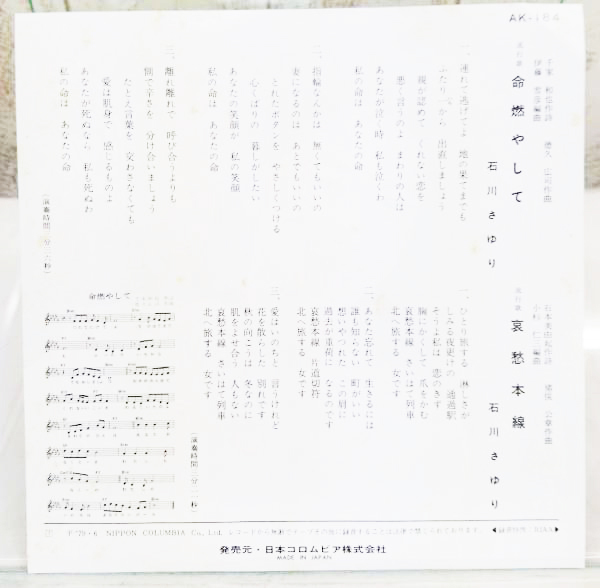 AK-184
流行歌
命燃やして
千家 和也作詩 徳久 広司作曲
伊藤 雪彦編曲
石川さゆり
一、連れて逃げてよ 地の果てまでも
ふたり一から 出直しましょう
親が認めて くれない恋を
悪く言うのよ まわりの人は
あなたが泣く時 私も泣くわ
私の命は あなたの命
二、指輪なんかは 無くてもいいの
妻になるのは あとでもいいの
とれたボタンを やさしくつける
心くばりの 暮しがしたい
あなたの笑顔が 私の笑顔
私の命は あなたの命
三、離れ離れで 呼び合うよりも
側で辛さを 分け合いましょう
たとえ言葉を 交わさなくても
愛は肌身で 感じるものよ
あなたが死ぬなら 私も死ぬわ
私の命は あなたの命
流行歌
哀愁本線
石本美由起作詩 猪俣 公章作曲
石川さゆり
一、ひとり旅する 淋しさが
しみる夜更けの 通過駅
そうよ私は 恋のきず
胸にかくして 爪をかむ
哀愁本線 さいはて列車
北へ旅する 女です
二、あなた忘れて 生きるには
誰も知らない 町がいい
想いやつれた この肩に
過去が重荷に なるのです
哀愁本線 片道切符
北へ旅する 女です
三、愛はいのちと 言うけれど
花を散らした 別れです
秋の向こうは 冬なのに
肌をよせ合う 人もない
哀愁本線 さいはて列車
北へ旅する 女です
命燃やして
F-'79・6 NIPPON COLUMBIA Co., Ltd. レコードから無断でテープその他に録音することは法律で禁じられております。
発売元・日本コロムビア株式会社
MADE IN JAPAN